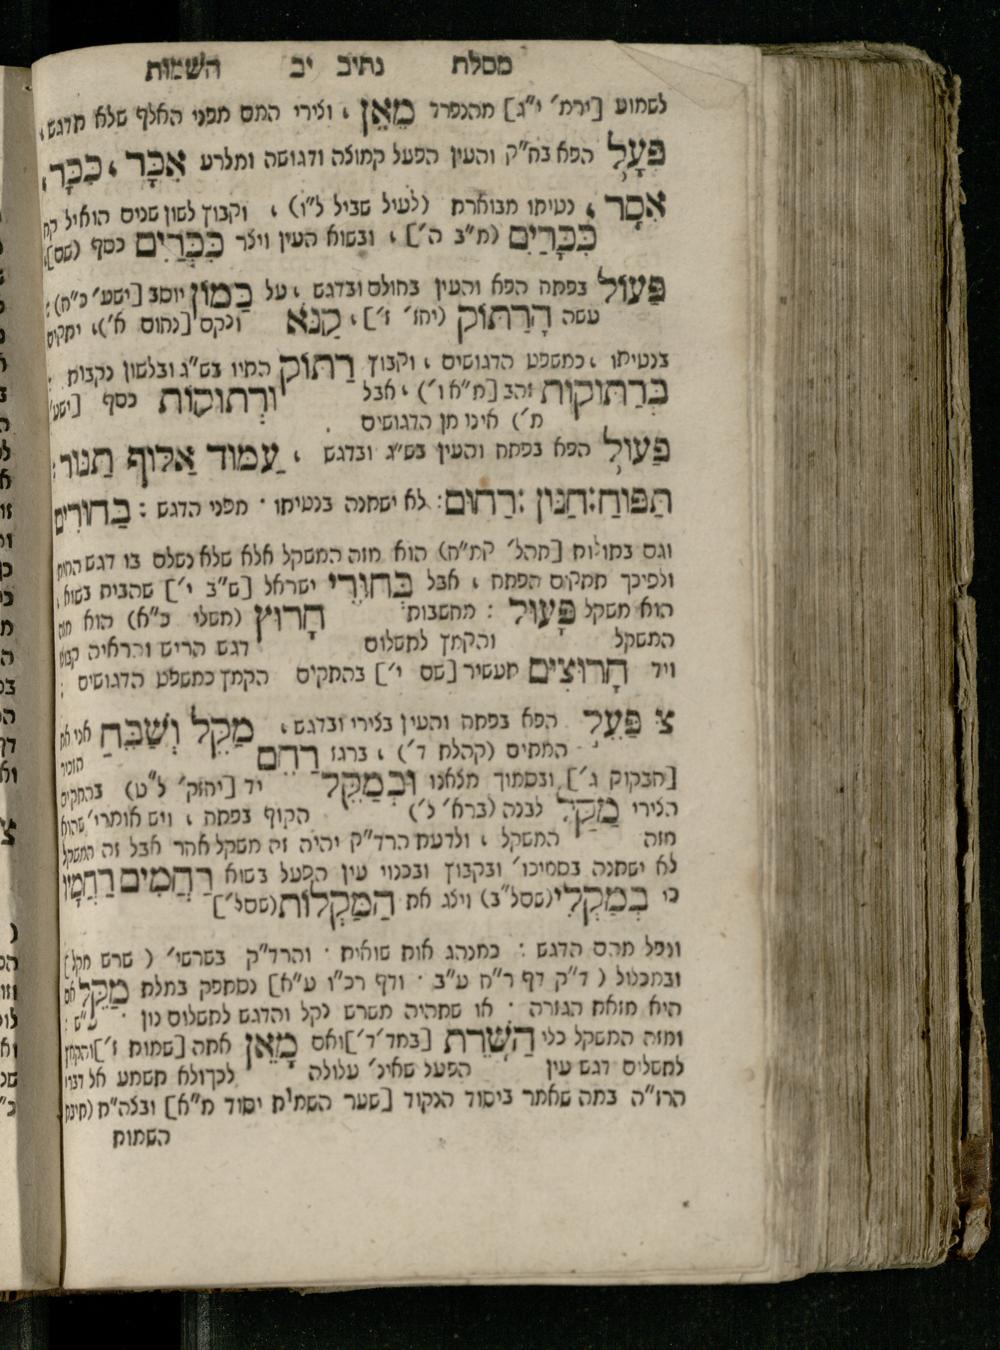 מסלת נתיב יב השמות
לשמוע [ירמ׳ י״ג] מהנפרד מֵאֵן ׃ וצירי המם מפני האלף שלא תדגש ׃
פִּעָל הפא בח״ק והעין הפעל קמוצה ודגושה ומלרע אִכָּר ׃ כִּכָּר ׃
אִסָר ׃ נטיתו מבוארת (לעיל שביל ל״ו) ׃ וקבוץ לשון שנים הואיל
כִּכָּרַיִם (מ״ב ה׳] ׃ ובשוא העין ויצר כִּכְּרַיִם כסף (שם] ׃
פַּעוֹל בפתח הפא והעין בחולם ובדגש ׃ על כַּמוֹן יוסב [ישע׳ כ״ח) ׃
עשה הָרַתּוֹק (יחז׳ ז׳] ׃ קַנּוֹא ונקם [נחום א׳) ׃ יתקים
בנטיתו ׃ כמשפט הדגושים ׃ וקבוץ רַתוֹק המיו בש״ג ובלשון נקבות ׃
בְּרַתּוּקוֹת זהב [מ״א ו׳) ׃ אבל וּרְתוּקוֹת כסף [ישע׳
מ׳) אינו מן הדגושים ׃
פַּעוּל הפא בפתח והעין בש״ג ובדגש ׃ עַמּוּד אַלּוּף תַּנּוּר ׃
תַּפּוּחַ ׃ חַנּוּן ׃ רַחוּם ׃ לא ישתנה בנטיתו ׃ מפני הדגש ׃ בַּחוּרִים
וגם בתולות [תהל׳ קמ״ח) הוא מזה המשקל אלא שלא נשלם בו דגש החית
ולפיכך תתקים הפתח ׃ אבל בְּחוּרֵי ישראל [ש״ב י׳] שהבית בשוא ׃
הוא משקל פָּעוּל ׃ מחשבות חָרוּץ (משלי כ״א) הוא מזה
המשקל והקמץ לתשלום דגש הריש והראיה קבוצו
ויד חָרוּצִים תעשיר [שם י׳] בהתקים הקמץ כמשפט הדגושים ׃
צ פַּעֵל הפא בפתח והעין בצירי ובדגש ׃ מַקֵּל וְשַׁבֵּחַ אני את
המתים (קהלת ד׳) ׃ ברגז רַחֵם תזכור
[חבקוק ג׳] ובסמוך מצאנו וּבְמַקֵּל יד [יחזק׳ ל״ט) בהתקים
הצירי מַקַּל לבנה (ברא׳ ל׳) הקוף בפתח ׃ ויש אומרי׳ שהוא
מזה המשקל ׃ ולדעת הרד״ק יהיה זה משקל אחר אבל זה המשקל
לא ישתנה בסמיכו׳ ובקבוץ ובכנוי עין הפעל בשוא רַחֲמִים רַחֲמָיו
כי בְמַקְלִי (שם ל״ב) ויצג את הַמַּקְלוֹת (שם ל׳]
ונפל מהם הדגש ׃ כמנהג אות שואית ׃ והרד״ק בשרשי׳ ( שרש מקל]
ובמכלול ( ד״ק דף ר״ח ע״ב ׃ ודף רכ״ו ע״א] נסתפק במלת מַקֵּל אם
היא מזאת הגזרה ׃ או שתהיה משרש נקל והדגש לתשלום נון ׃ ע״ש ׃
ומזה המשקל כלי הַשָּׁרֵת [במד׳ ד׳] ואם מָאֵן אתה [שמות ז׳] והקמץ
לתשלום דגש עין הפעל שאינ׳ עלולה לכך ולא תשמע אל דברי
הרז״ה במה שאמר ביסוד הנקוד [שער השמות יסוד מ״א] ובצה״ת (תיבת
השמות